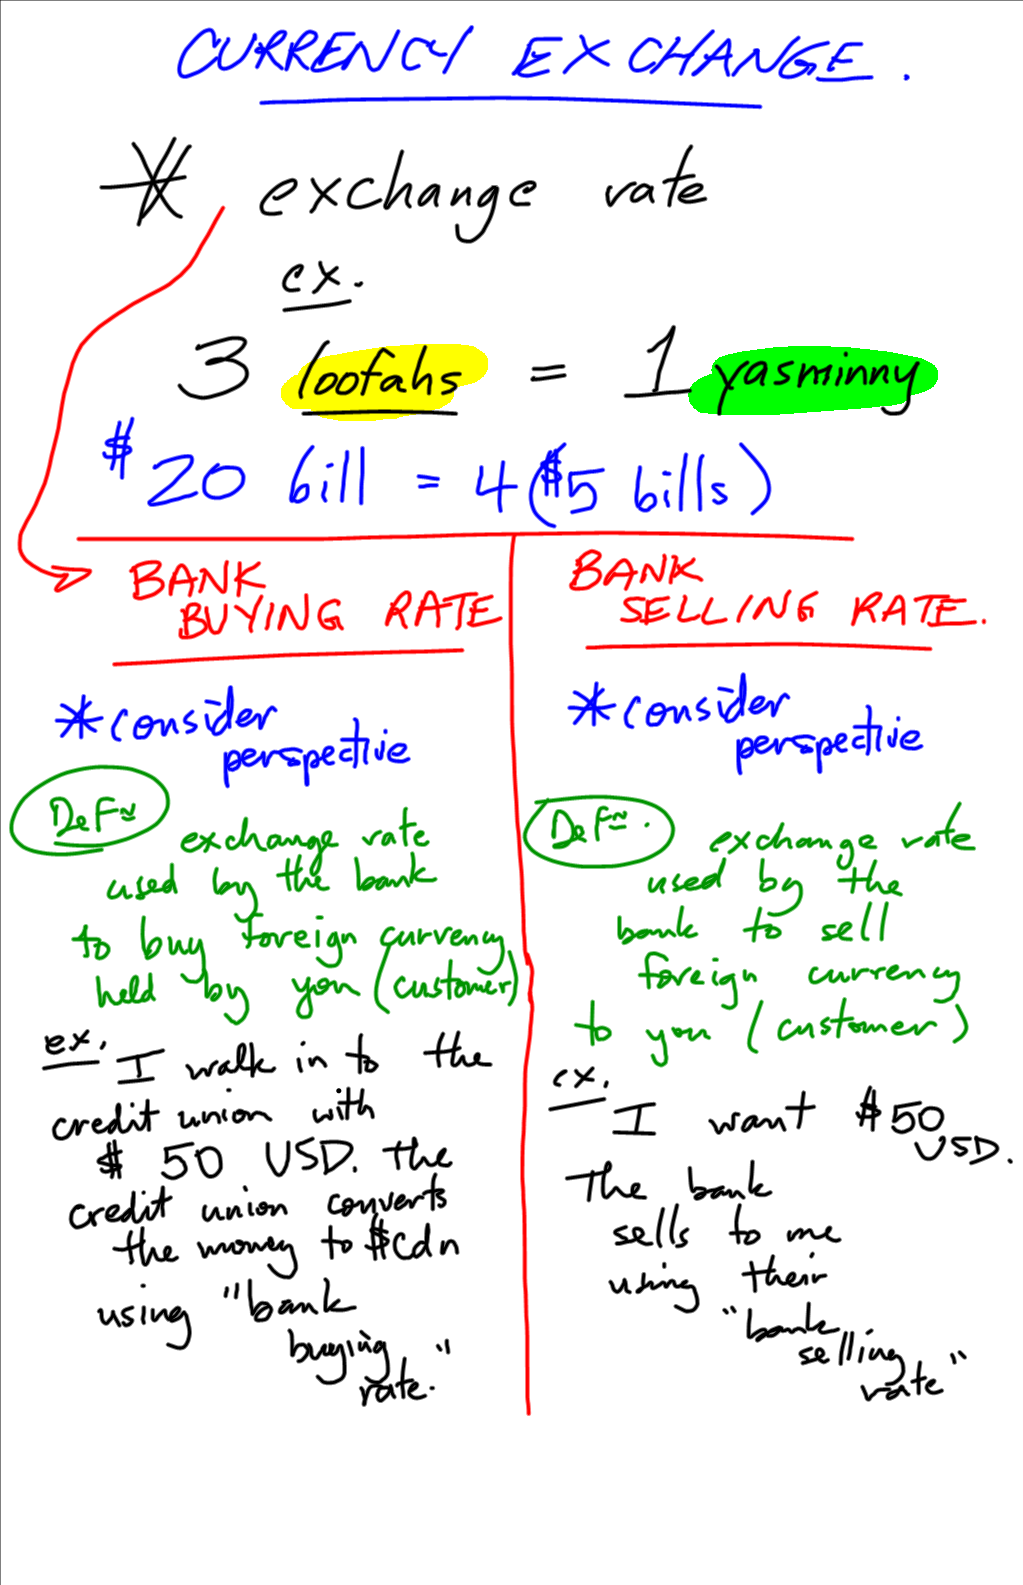 CURRENCY EXCHANGE.
* exchange rate
ex.
3 loofahs = 1 yasminny
$20 bill = 4($5 bills)
BANK
BUYING RATE
*consider
perspective
Defn
exchange rate
used by the bank
to buy foreign currency
held by you (customer)
ex. I walk in to the
credit union with
$50 USD. the
credit union converts
the money to $Cdn
using "bank
buying
rate."
BANK
SELLING RATE.
*consider
perspective
Defn.
exchange rate
used by the
bank to sell
foreign currency
to you (customer)
ex. I want $50
USD.
The bank
sells to me
using their
"bank
selling
rate"